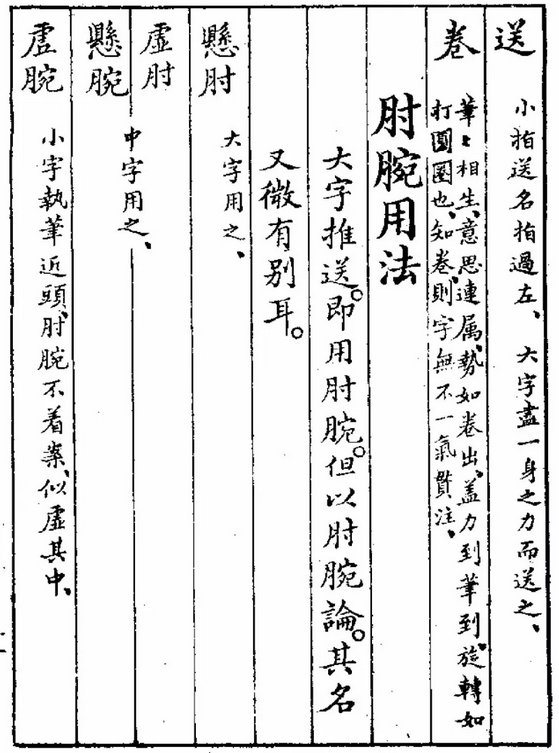 送 小拍送名拍過左、大字盡一身之力而送之、
卷 筆〻相生、意思連属、勢如卷出、盖力到筆到、旋轉如
打圓圈也、知卷、則字無不一氣貫注、
肘腕用法
大字推送。即用肘腕。但以肘腕論。其名
又微有别耳。
懸肘 大字用之、
虚肘
懸腕 中字用之、
虚腕 小字執筆近頭、肘腕不着案、似虚其中、